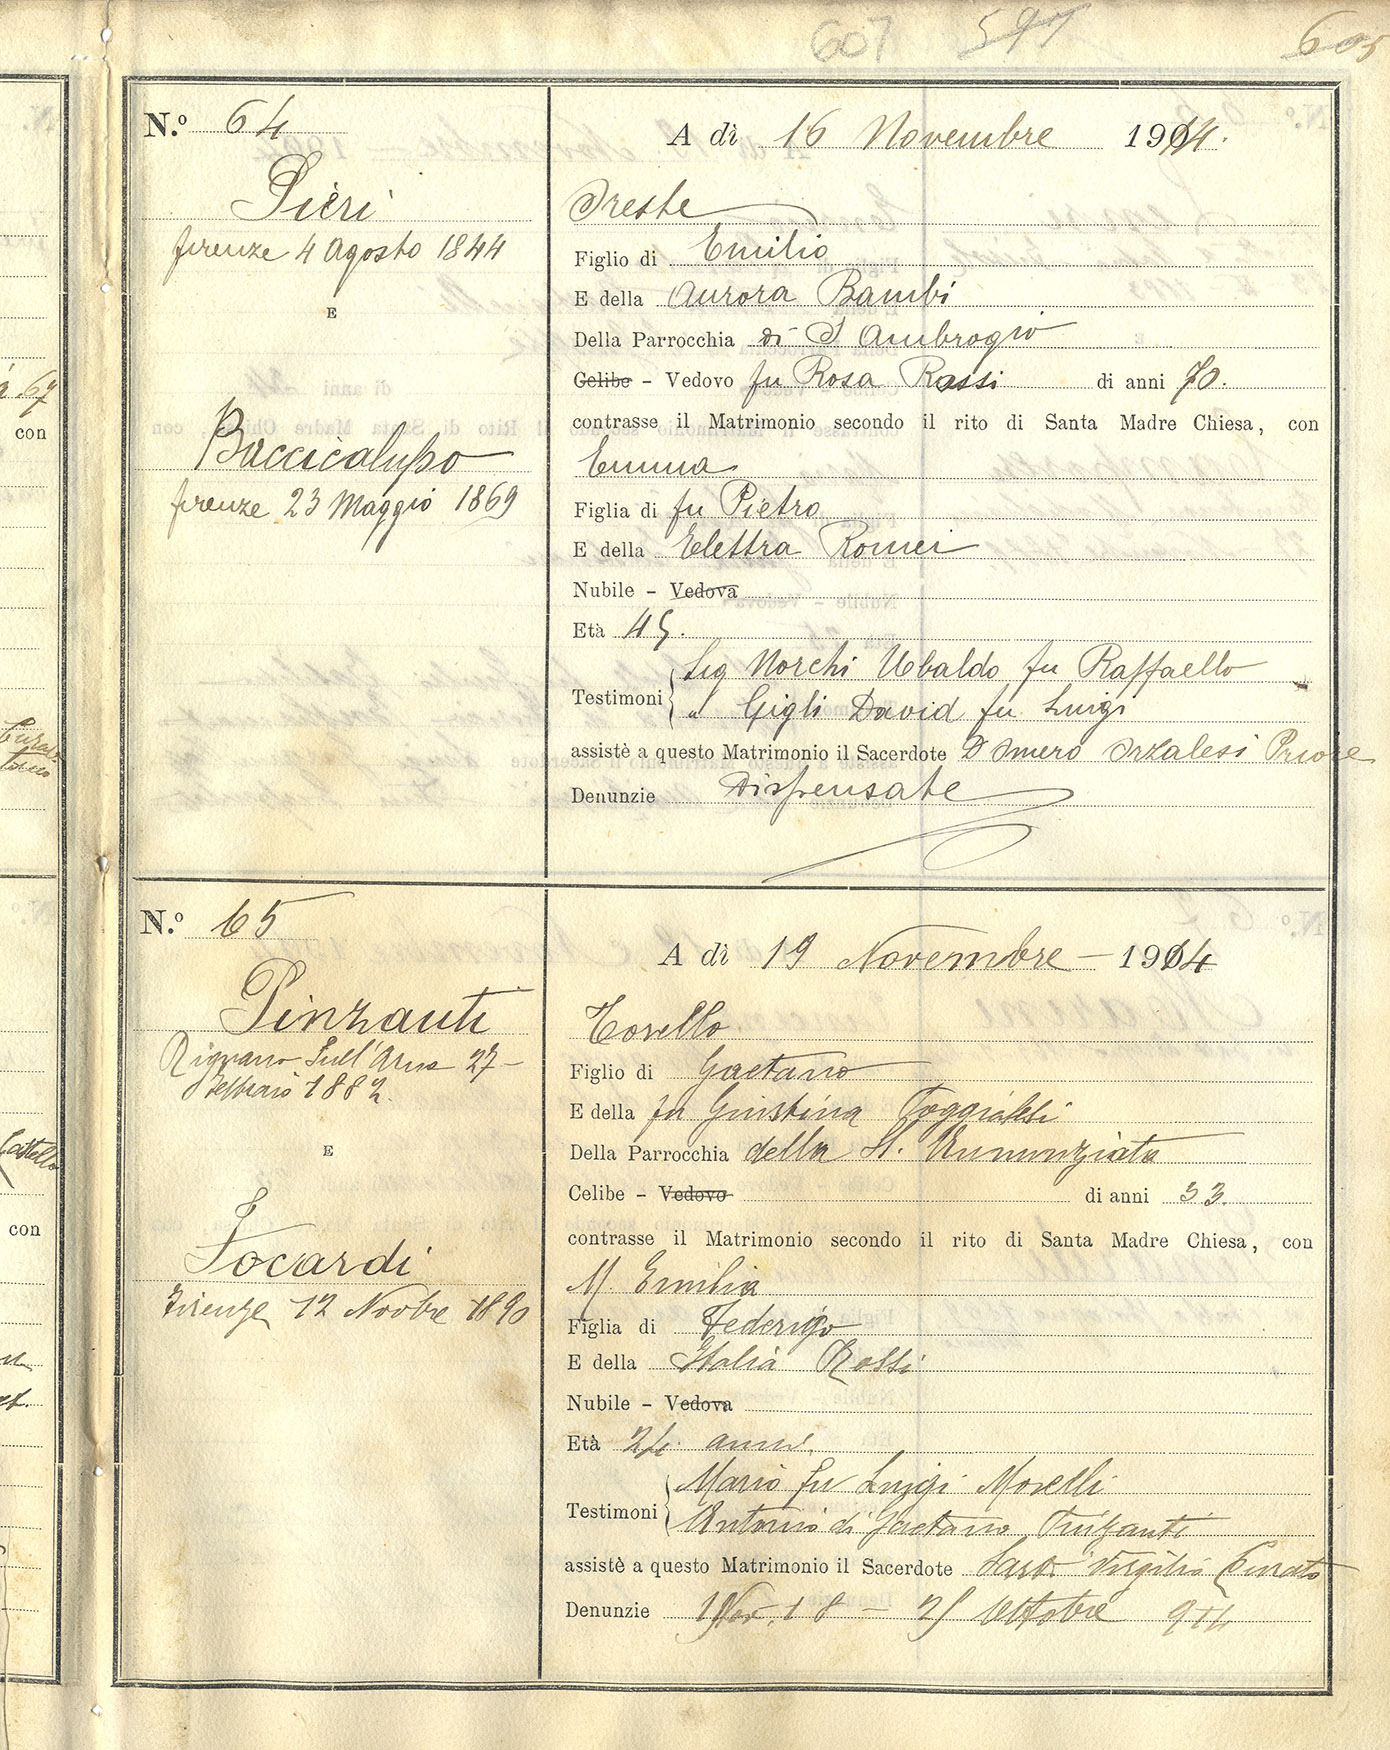 607 597 605
N.º 64
Pieri
firenze 4 Agosto 1844
E
Baccicalupo
firenze 23 Maggio 1869
A dì 16 Novembre 1914.
Oreste
Figlio di Emilio
E della Aurora Bambi
Della Parrocchia di S Ambrogio
Celibe - Vedovo fu Rosa Rassi di anni 70.
contrasse il Matrimonio secondo il rito di Santa Madre Chiesa, con
Emma
Figlia di fu Pietro
E della Elettra Romei
Nubile - Vedova
Età 45.
Testimoni Sig Norchi Ubaldo fu Raffaello
" Gigli David fu Luigi
assistè a questo Matrimonio il Sacerdote D Omero Orzalesi Priore
Denunzie Dispensate
N.º 65
Pinzauti
Rignano Sull'Arno 27-
Febbraio 1882.
E
Focardi
Firenze 12 Novbre 1890
A dì 19 Novembre - 1914
Torello
Figlio di Gaetano
E della fu Giustina Poggialesi
Della Parrocchia della SS. Annunziata
Celibe - Vedovo di anni 33.
contrasse il Matrimonio secondo il rito di Santa Madre Chiesa, con
M. Emilia
Figlia di Federigo
E della Italia Rossi
Nubile - Vedova
Età 24 anni.
Testimoni Mario fu Luigi Morelli
Antonio di Gaetano Pinzauti
assistè a questo Matrimonio il Sacerdote Virgilio Curato
Denunzie 18 - 25 Ottobre 914
con
con
Castello